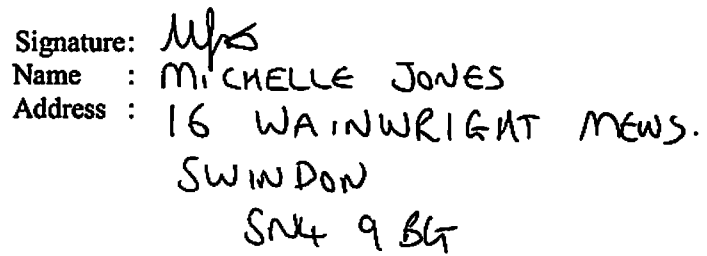 Signature:
Name : MICHELLE JONES
Address : 16 WAINWRIGHT MEWS.
SWINDON
SN4 9BG